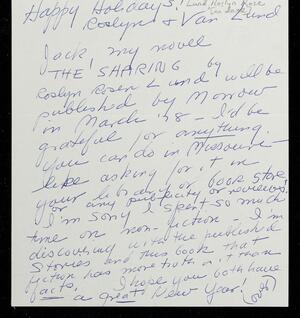 Happy Holidays!
Lund, Roslyn Rosen
Roslyn & Van Lund
Jack, my novel
THE SHARING by
Roslyn Rosen Lund will be
published by Morrow
in March '78 - I'd be
grateful for anything
you can do in Missouri -
like asking for it in
your library or book store,
any publicity or reviews!
I'm sorry I spent so much
time on non-fiction - I'm
discovering with the published
stories and this book that
fiction has more truth in it than
facts. I hope you both have
a great New Year!